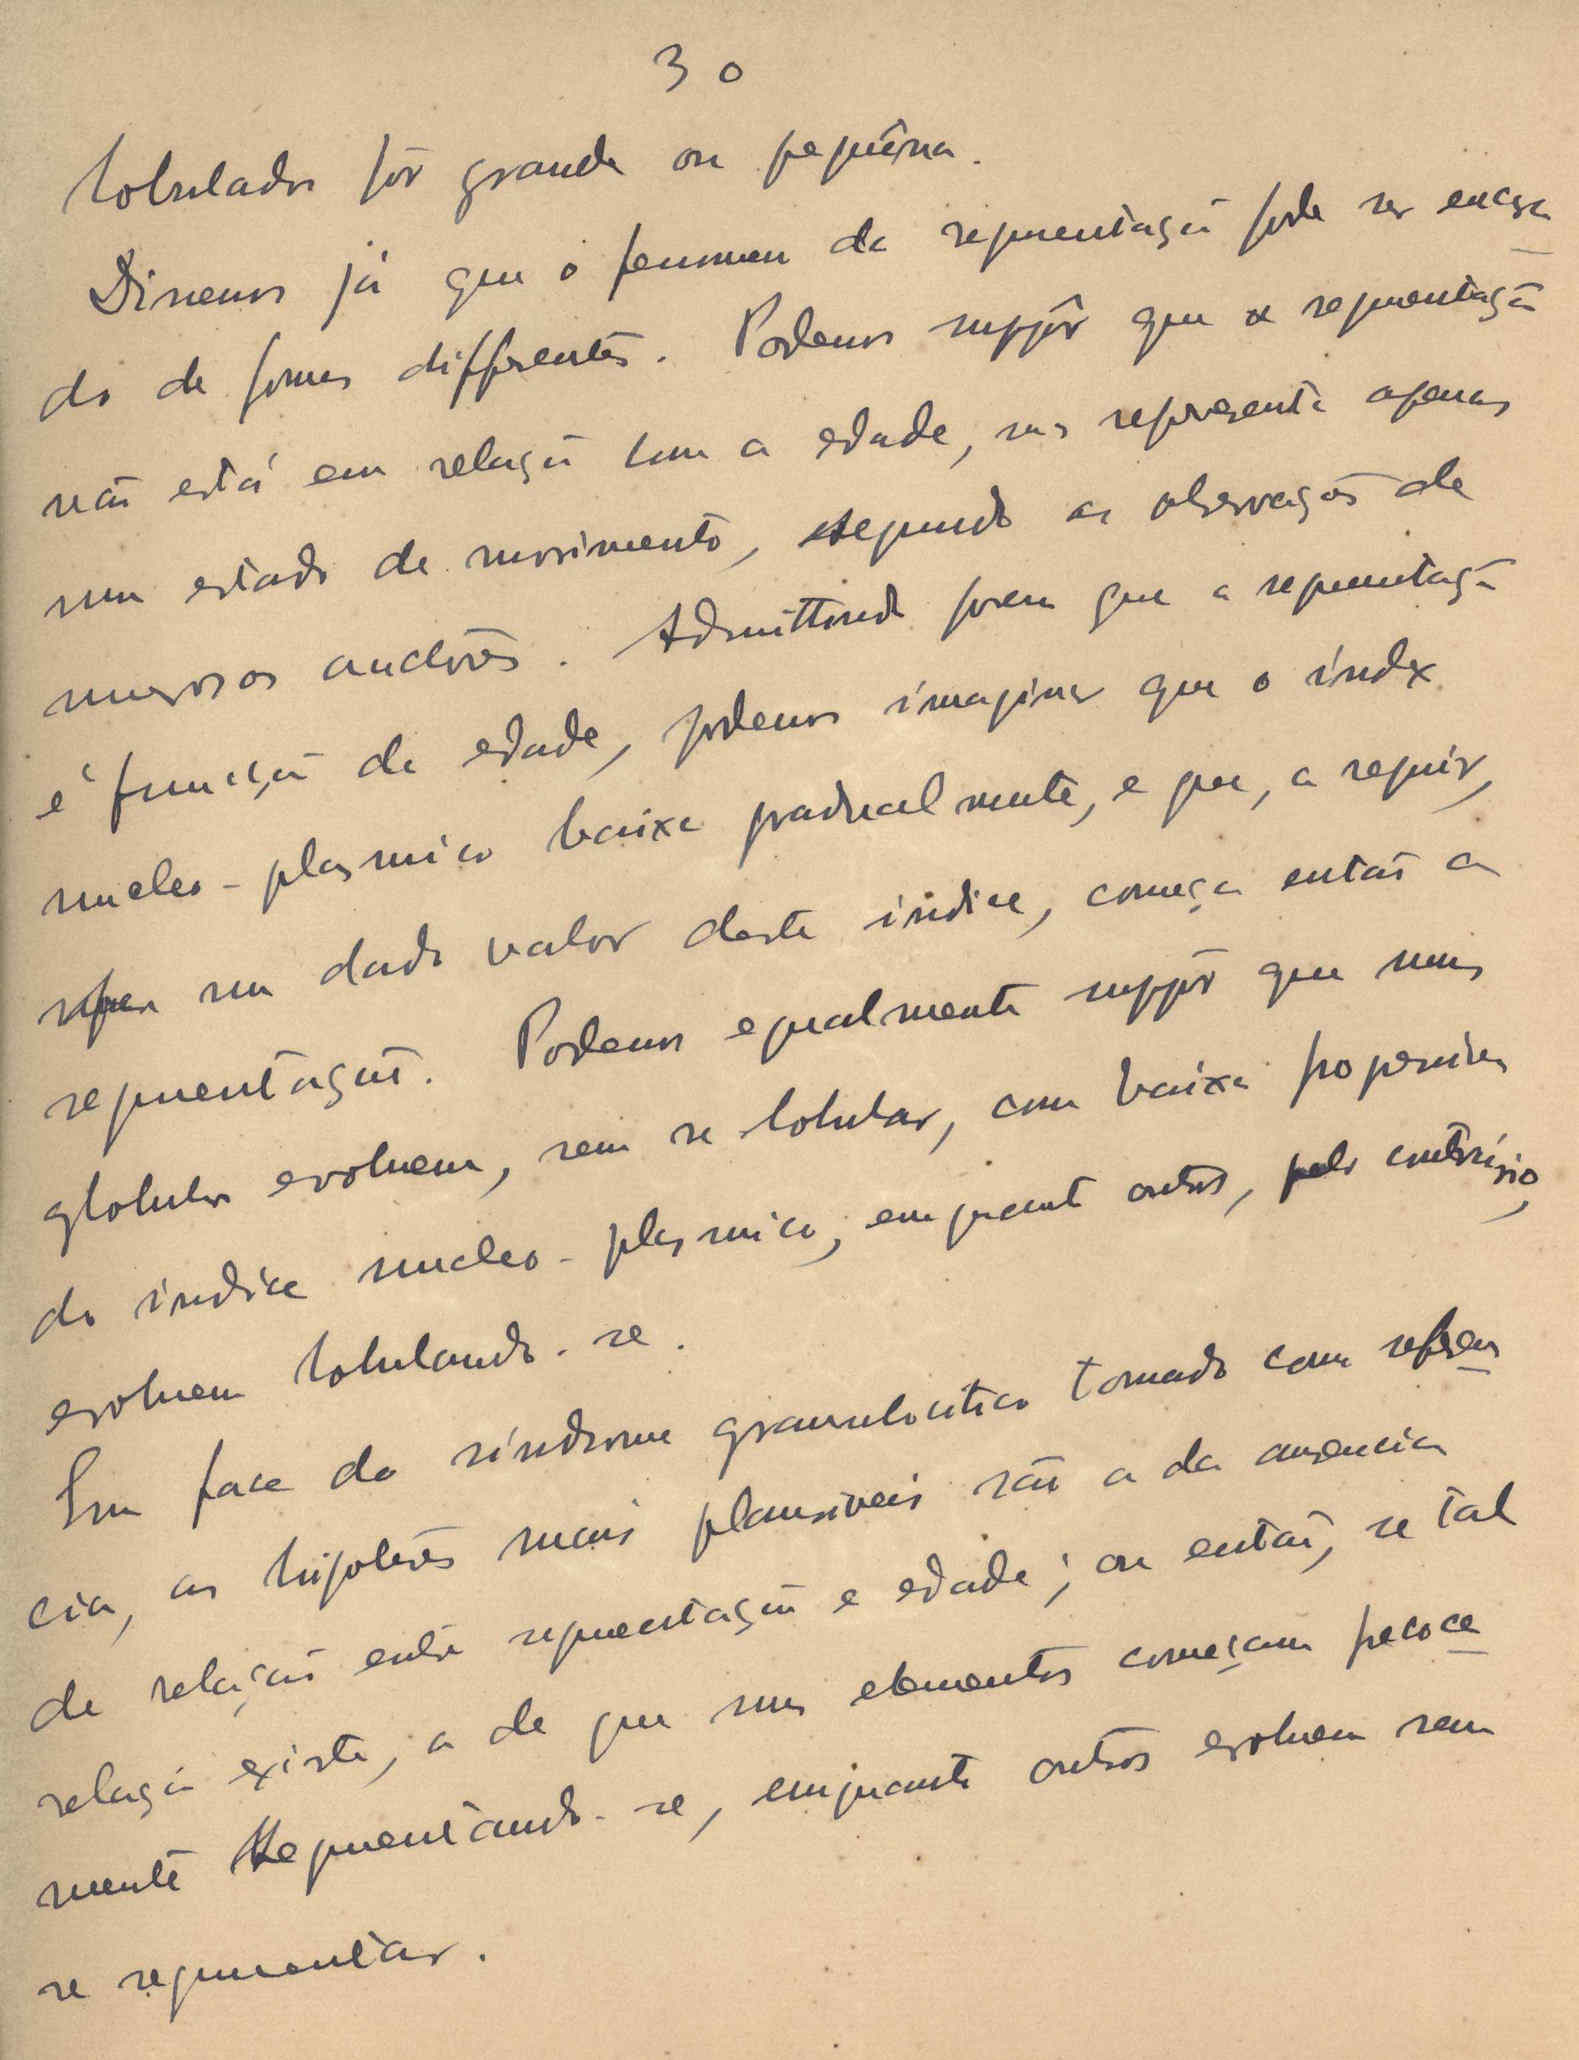 30
lobulados fôr grande ou pequêna.
Dissemos já que o fenomeno da segmentação pode ser encara
do de formas differentes. Podemos suppôr que a segmentação
não está em relação com a edade, mas representa apenas
um estado de movimento, segundo as observações de
numerosos auctores. Admittindo porem que a segmentação
é funcção da edade, podemos imaginar que o index
nucleo-plasmico baixa gradualmente, e que, a seguir,
um dado valor deste indice, começa então a
segmentação. Podemos egualmente suppôr que uns
globulos evoluem, sem se lobular, com baixa progressiva
do indice nucleo-plasmico, emquanto outros, pelo contrário,
evoluem lobulando-se.
Em face do sindrome granulocitico tomado como referen
cia, as hipoteses mais plausiveis são a da ausencia
de relação entre segmentação e edade; ou então, se tal
relação existe, a de que uns elementos começam precoce
mente segmentando-se, emquanto outros evoluem sem
se segmentar.